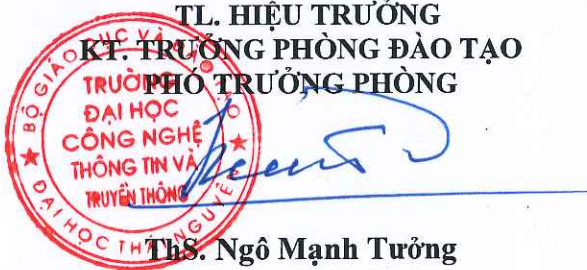 TL. HIỆU TRƯỞNG
KT. TRƯỞNG PHÒNG ĐÀO TẠO
PHÓ TRƯỞNG PHÒNG
BỘ GIÁO DỤC VÀ ĐÀO TẠO
TRƯỜNG
ĐẠI HỌC
CÔNG NGHỆ
THÔNG TIN VÀ
TRUYỀN THÔNG
ĐẠI HỌC THÁI NGUYÊN
ThS. Ngô Mạnh Tưởng